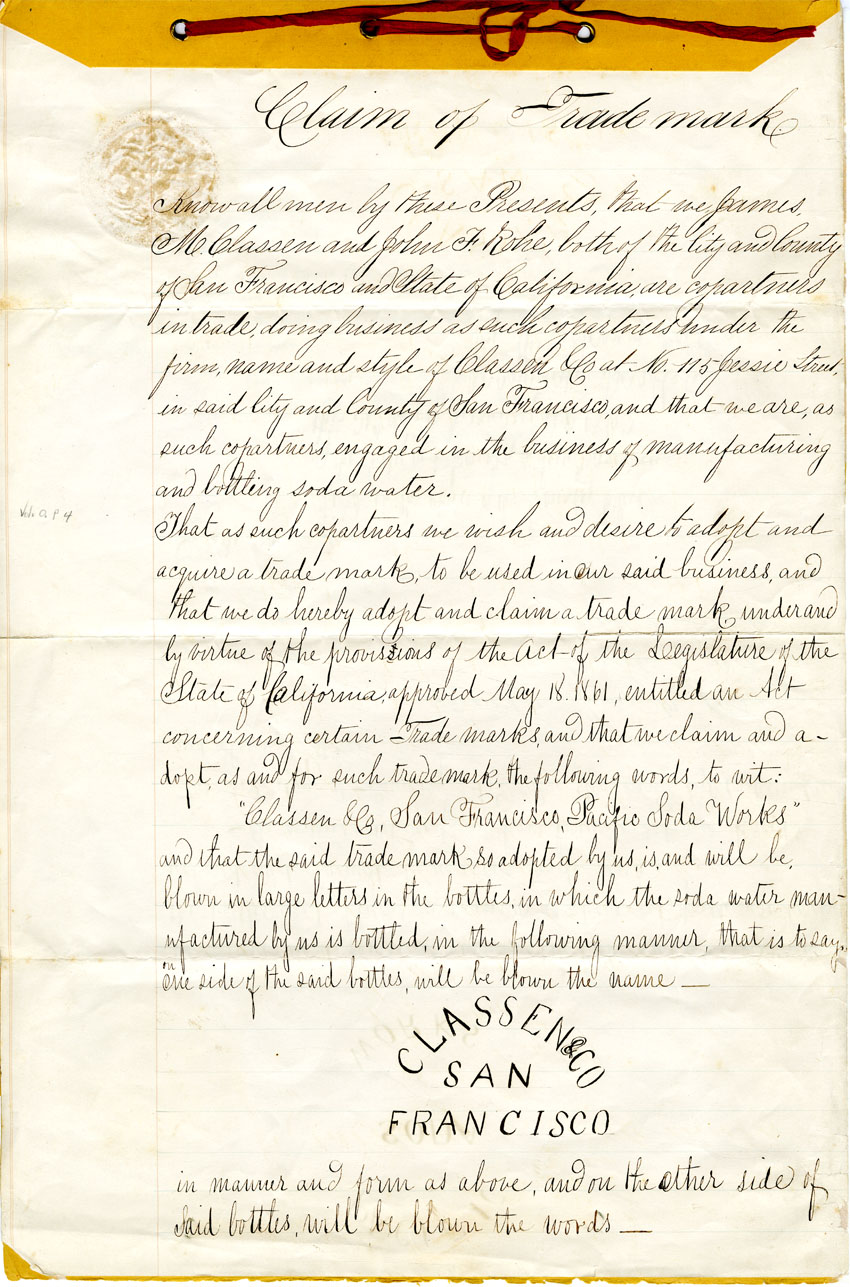 Claim of Trade mark
Know all men by these Presents, that we James,
M. Classen and John F. Rohe, both of the City and County
of San Francisco and State of California, are copartners
in trade, doing business as such copartners under the
firm, name and style of Classen & Co at No. 115 Jessie Street,
in said City and County of San Francisco, and that we are, as
such copartners, engaged in the business of manufacturing
and bottling soda water.
That as such copartners we wish and desire to adopt and
acquire a trade mark, to be used in our said business, and
that we do hereby adopt and claim a trade mark under and
by virtue of the provisions of the Act of the Legislature of the
State of California, approved May 18. 1861, entitled an Act
concerning certain Trade marks, and that we claim and a-
dopt, as and for such trade mark, the following words, to wit:
"Classen & Co, San Francisco, Pacific Soda Works"
and that the said trade mark, so adopted by us, is, and will be,
blown in large letters in the bottles, in which the soda water man-
ufactured by us is bottled, in the following manner, that is to say,
on one side of the said bottles, will be blown the name —
CLASSEN & CO
SAN
FRANCISCO
in manner and form as above, and on the other side of
said bottles, will be blown the words —